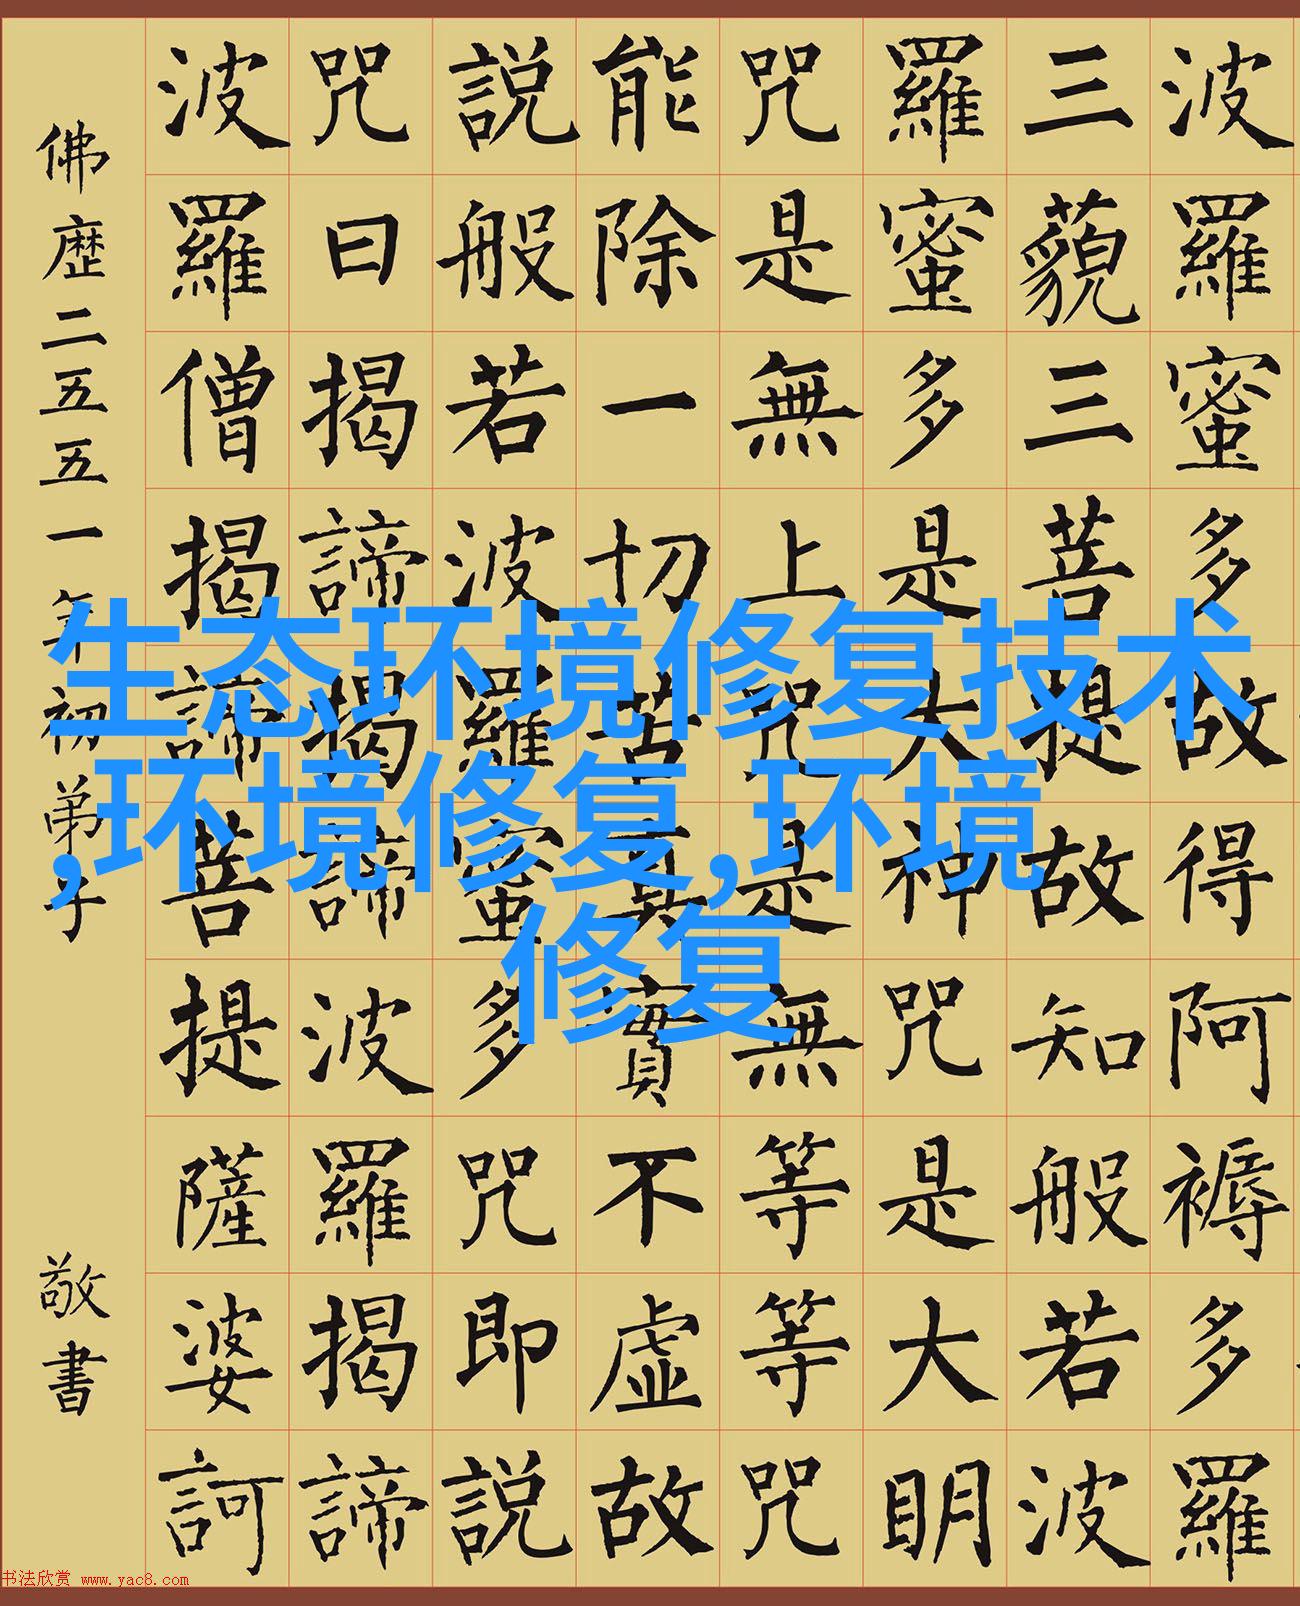 波羅蜜多故得阿褥多羅
三藐三菩提故知般若波
羅蜜多是大神咒是大明
咒是無上咒是無等等咒
能除一切苦真實不虛故
說般若波羅蜜多咒即說
咒曰揭諦揭諦波羅揭諦
波羅僧揭諦菩提薩婆訶
佛歷二五五一年初弟子 敬書
生态环境修复技术
,环境修复,环境
修复
书法欣赏 www.yac8.com